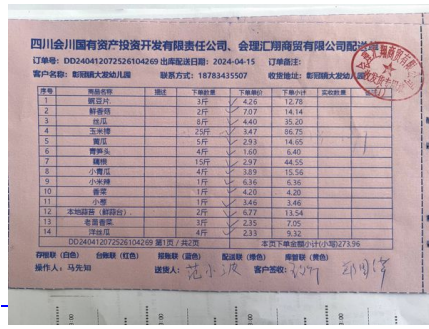 四川会川国有资产投资开发有限责任公司、会理汇翔商贸有限公司配送单
订单号: DD240412072526104269 出库配送日期: 2024-04-15 订单备注:
客户名称: 彰冠镇大发幼儿园 联系方式: 18783435507 收货地址: 彰冠镇大发幼儿园
序号 商品名称 描述 下单数量 下单单价 下单小计 实收数量
1 豌豆片 3斤 4.26 12.78
2 鲜香菇 2斤 7.07 14.14
3 丝瓜 8斤 4.40 35.20
4 玉米棒 25斤 3.47 86.75
5 黄瓜 5斤 2.93 14.65
6 青笋头 4斤 1.60 6.40
7 藕根 15斤 2.97 44.55
8 小青瓜 4斤 3.89 15.56
9 小米辣 1斤 6.36 6.36
10 香菜 1斤 4.20 4.20
11 小葱 1斤 3.46 3.46
12 本地蒜苔(鲜蒜台) 2斤 6.77 13.54
13 老苗香菜 3斤 2.35 7.05
14 洋丝瓜 4斤 2.33 9.32
DD240412072526104269 第1页 / 共2页 本页下单金额小计(小写)273.96
存根联 (白色) 台账联 (红色) 报账联 (蓝色) 配送联 (绿色) 库管联 (黄色)
操作人: 马先知 送货人: 范小波 客户签收: